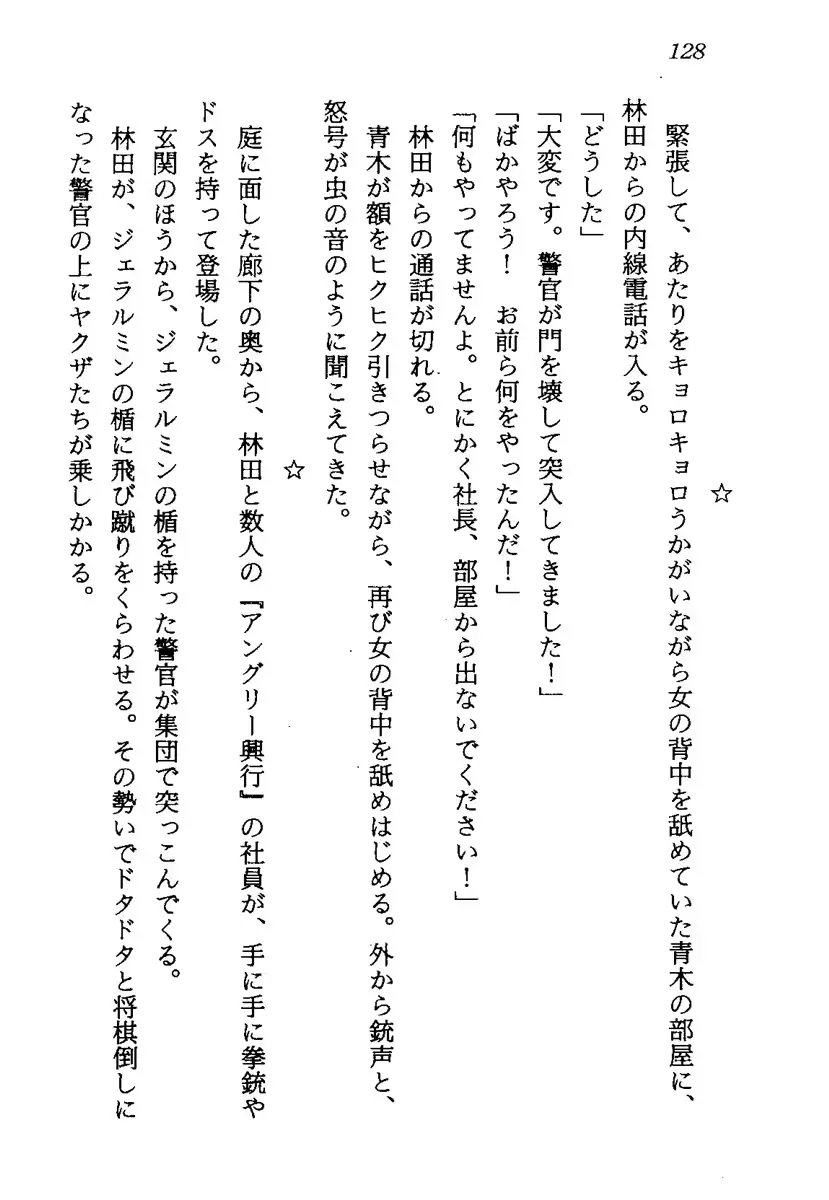 128
☆
緊張して、あたりをキョロキョロうかがいながら女の背中を舐めていた青木の部屋に、
林田からの内線電話が入る。
「どうした」
「大変です。警官が門を壊して突入してきました！」
「ばかやろう！　お前ら何をやったんだ！」
「何もやってませんよ。とにかく社長、部屋から出ないでください！」
林田からの通話が切れる。
青木が額をヒクヒク引きつらせながら、再び女の背中を舐めはじめる。外から銃声と、
怒号が虫の音のように聞こえてきた。
☆
庭に面した廊下の奥から、林田と数人の『アングリー興行』の社員が、手に手に拳銃や
ドスを持って登場した。
玄関のほうから、ジェラルミンの楯を持った警官が集団で突っこんでくる。
林田が、ジェラルミンの楯に飛び蹴りをくらわせる。その勢いでドタドタと将棋倒しに
なった警官の上にヤクザたちが乗しかかる。